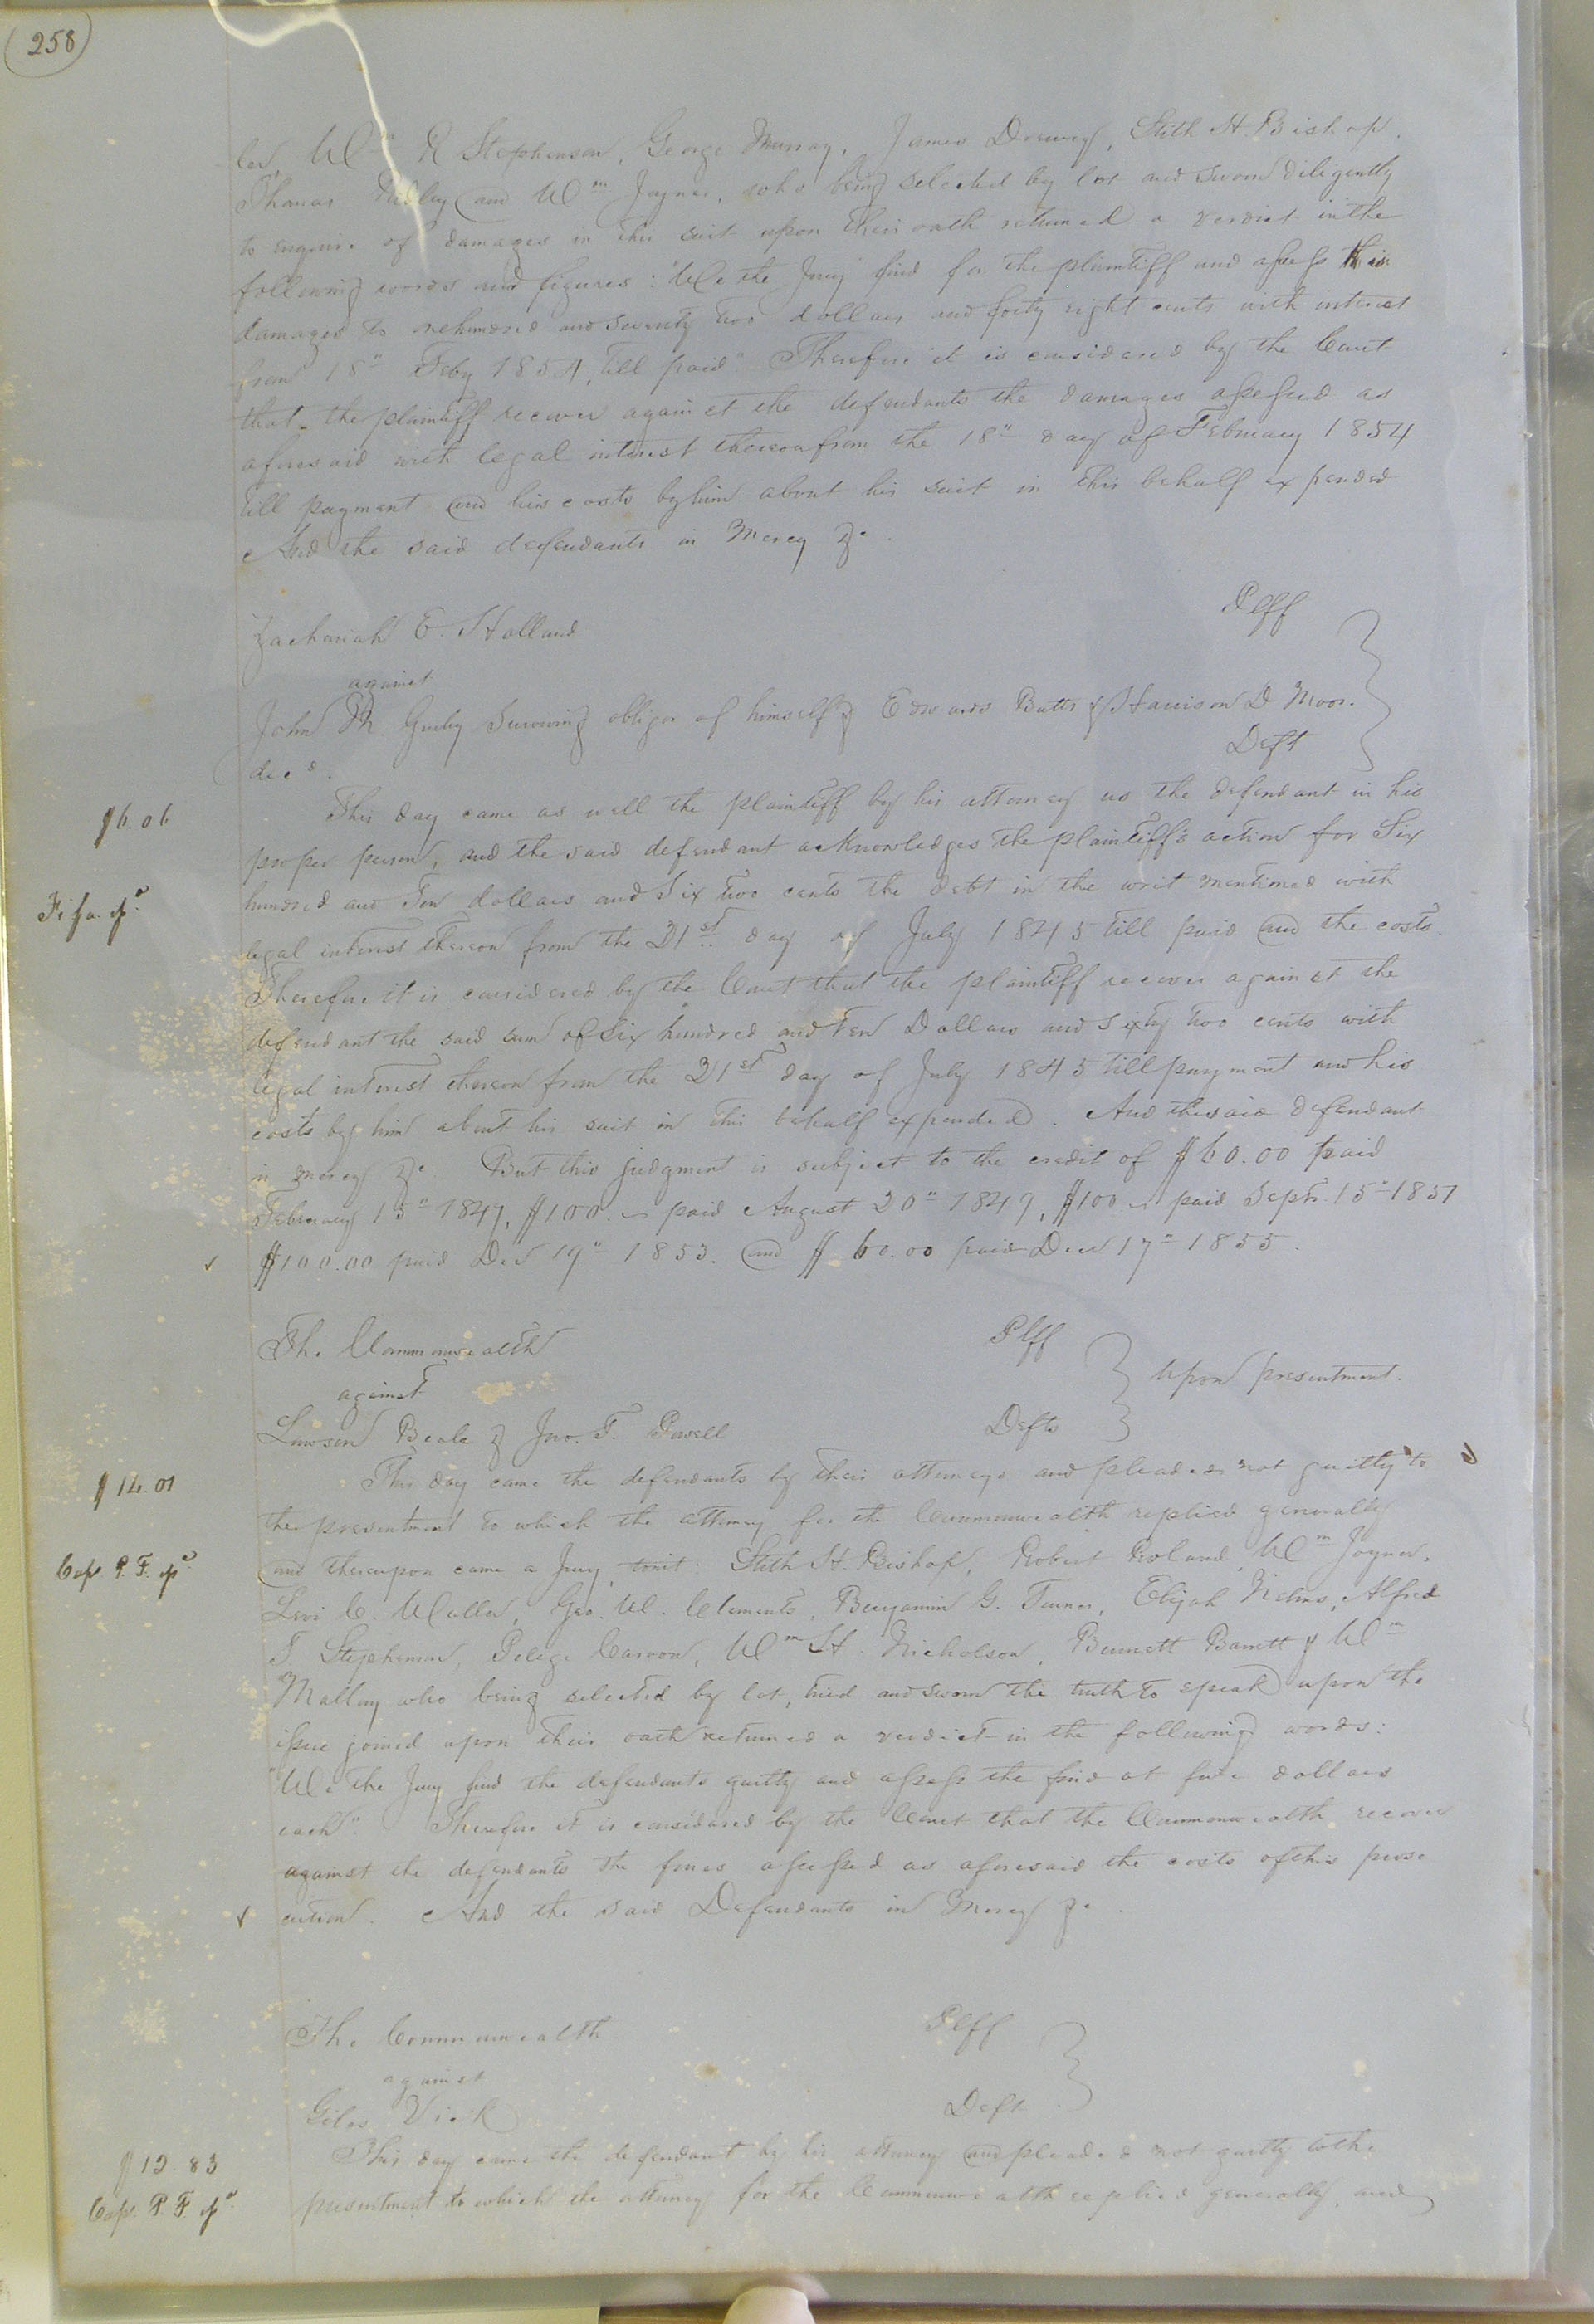 258
ler, Wm R Stephenson, George Murray, James Drewry, Stith H. Bishop,
Thomas Ridley and Wm Joyner, who being selected by lot and sworn diligently
to enquire of damages in this suit upon their oath returned a verdict in the
following words and figures: "We the Jury find for the plaintiff and assess his
damages to onehundred and seventy two dollars and forty eight cents with interest
from 18" Feby 1854, till paid" Therefore it is considered by the Court
that the plaintiff recover against the defendants the damages assessed as
aforesaid with legal interest thereon from the 18" day of February 1854
till payment and his costs by him about his suit in this behalf expended
And the said defendants in Mercy &c.
Plff
Zachariah E. Holland
against
John M. Gurley Surviving obligor of himself & Edwards Butts & Harrison D Moore
decd.
Deft
This day came as well the plaintiff by his attorney as the defendant in his
$6.06
proper person, and the said defendant acknowledges the plaintiff's action for Six
hundred and Ten dollars and Six two cents the debt in the writ mentioned with
Fi fa
legal interest thereon from the 21st day of July 1845 till paid and the costs.
Therefore it is considered by the Court that the plaintiff recover against the
defendant the said sum of Six hundred and Ten Dollars and sixty two cents with
legal interest thereon from the 21st day of July 1845 till payment and his
costs by him about his suit in this behalf expended. And the said defendant
in mercy &c But this judgment is subject to the credit of $60.00 paid
February 15" 1847, $100. paid August 20" 1849, $100. paid Septr. 15" 1851
$100.00 paid Dec 19" 1853. and $60.00 paid Decr 17" 1855.
The Commonwealth Plff
against upon presentment.
Lawson Beale & Jno. T. Powell Defts
This day came the defendants by their attorneys and pleaded not guilty to
$14.01
the presentment to which the attorney for the Commonwealth replied generally
and thereupon came a Jury, towit: Stith H. Bishop, Robert Roland, Wm Joyner,
Cap P. F.
Levi C. Waller, Geo. W. Clements, Benjamin G. Turner, Elijah Nelms, Alfred
T Stephenson, Pelege Carson, Wm H. Nicholson, Bennett Barrett & Wm
Mallory who being selected by lot, tried and sworn the truth to speak upon the
issue joined upon their oath returned a verdict in the following words:
"We the Jury find the defendants guilty and assess the fine at five dollars
each". Therefore it is considered by the Court that the Commonwealth recover
against the defendants the fines assessed as aforesaid the costs of this prose
cution. And the said Defendants in Mercy &c.
The Commonwealth Plff
against
Giles Vick Deft
This day came the defendant by his attorney and pleaded not guilty to the
$12.83
presentment to which the attorney for the Commonwealth replied generally, and
Cap. P. F.